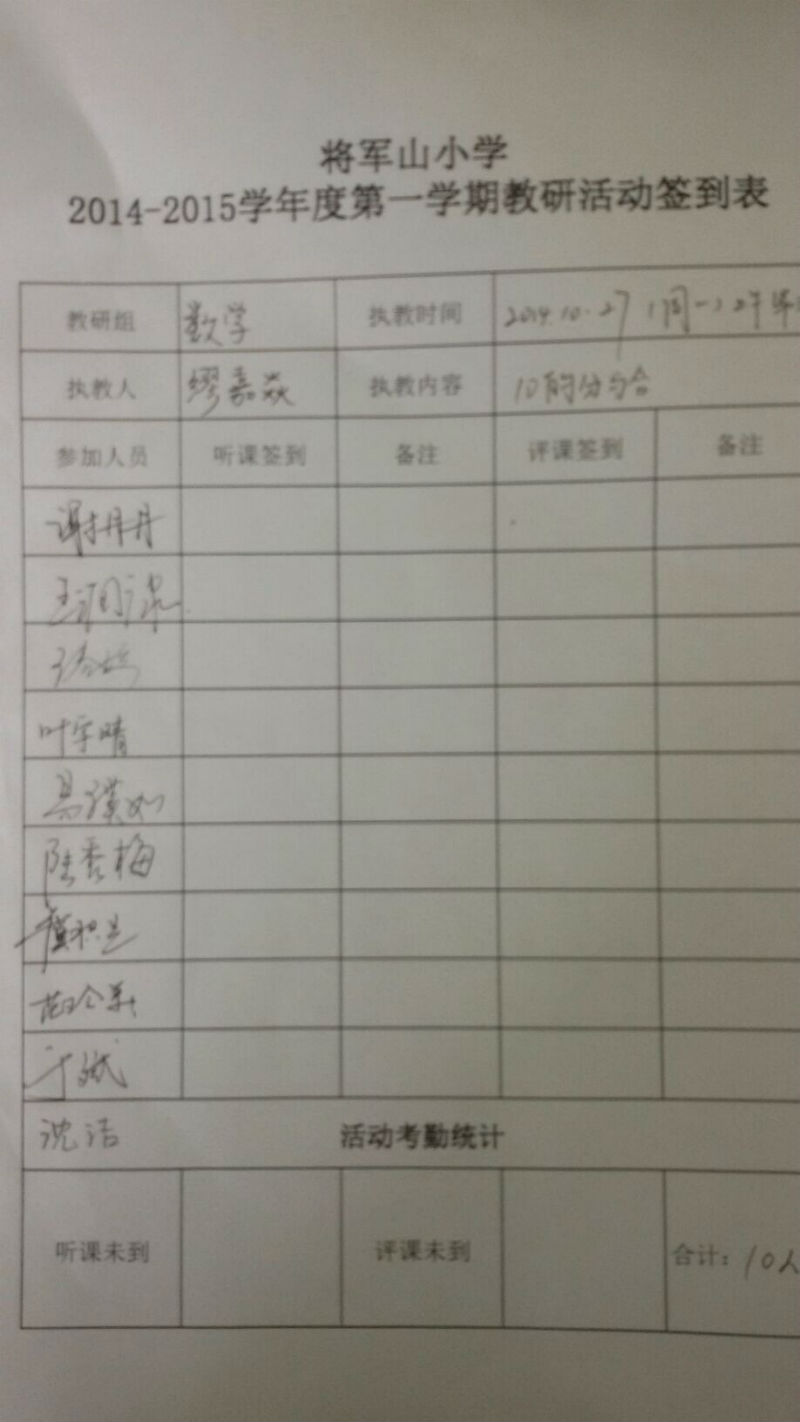 将军山小学
2014-2015学年度第一学期教研活动签到表
教研组 数学 执教时间 2014.10.27(周一)上午
执教人 缪嘉焱 执教内容 10的分与合
参加人员 听课签到 备注 评课签到 备注
谢丹丹
叶宇晴
陆秀梅
沈洁 活动考勤统计
听课未到 评课未到 合计：10人